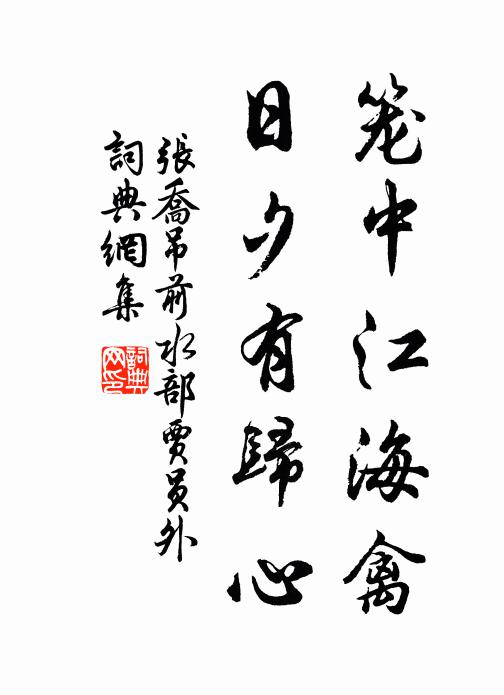 笼中江海禽
日夕有歸心
張喬吊前水部賈員外
詞典網集
詞典
网印